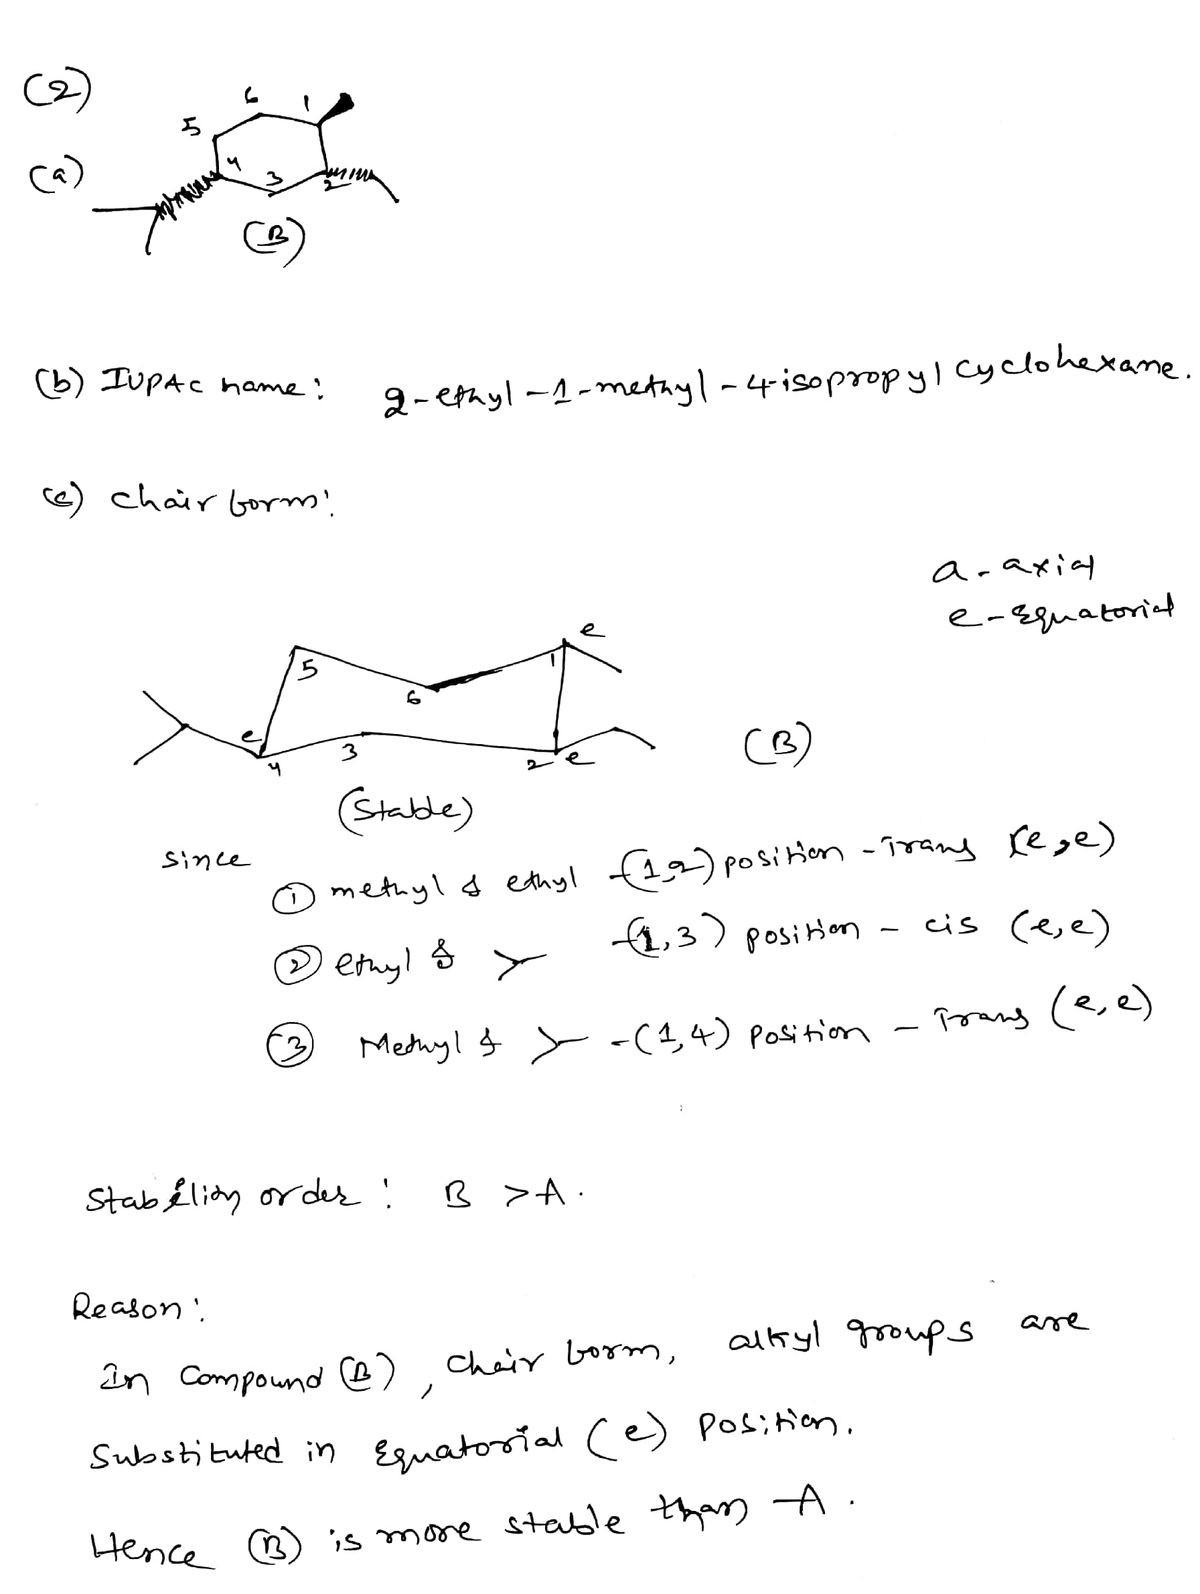 (2)
6 1
5
(a) 4 3 2
(B)
(b) IUPAC name: 2-ethyl-1-methyl-4-isopropyl cyclohexane.
(c) chair form:
a - axial
e - Equatorial
e
5 1
6
e 3 (B)
4 2 e
(Stable)
since
① methyl & ethyl -(1,2) position - Trans (e,e)
② ethyl & -(1,3) position - cis (e,e)
③ Methyl & -(1,4) position - Trans (e,e)
Stability order: B > A.
Reason:
In compound (B), chair form, alkyl groups are
Substituted in Equatorial (e) position.
Hence (B) is more stable than A.